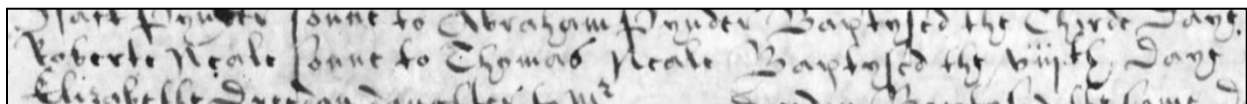 Pynder sonne to Abraham Pynder Baptysed the Thirde Daye.
Roberte Neale sonne to Thomas Neale Baptysed the viijth Daye
Elizabethe daughter to Mr the same